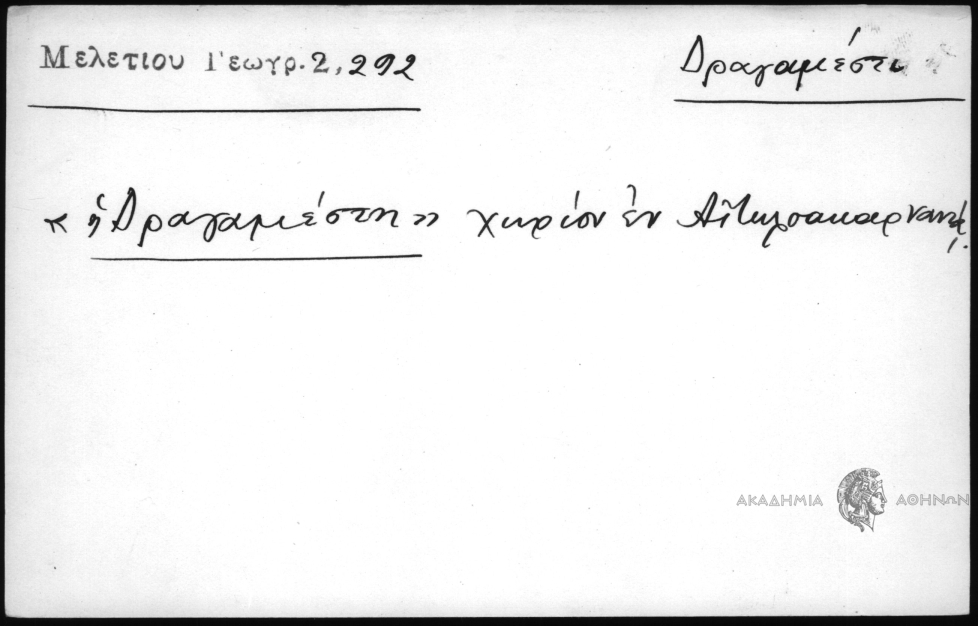 Μελετίου Γεωγρ. 2, 292
Δραγαμέστι
« ἡ Δραγαμέστη » χωρίον ἐν Αἰτωλοακαρνανίᾳ.
ΑΚΑΔΗΜΙΑ ΑΘΗΝΩΝ